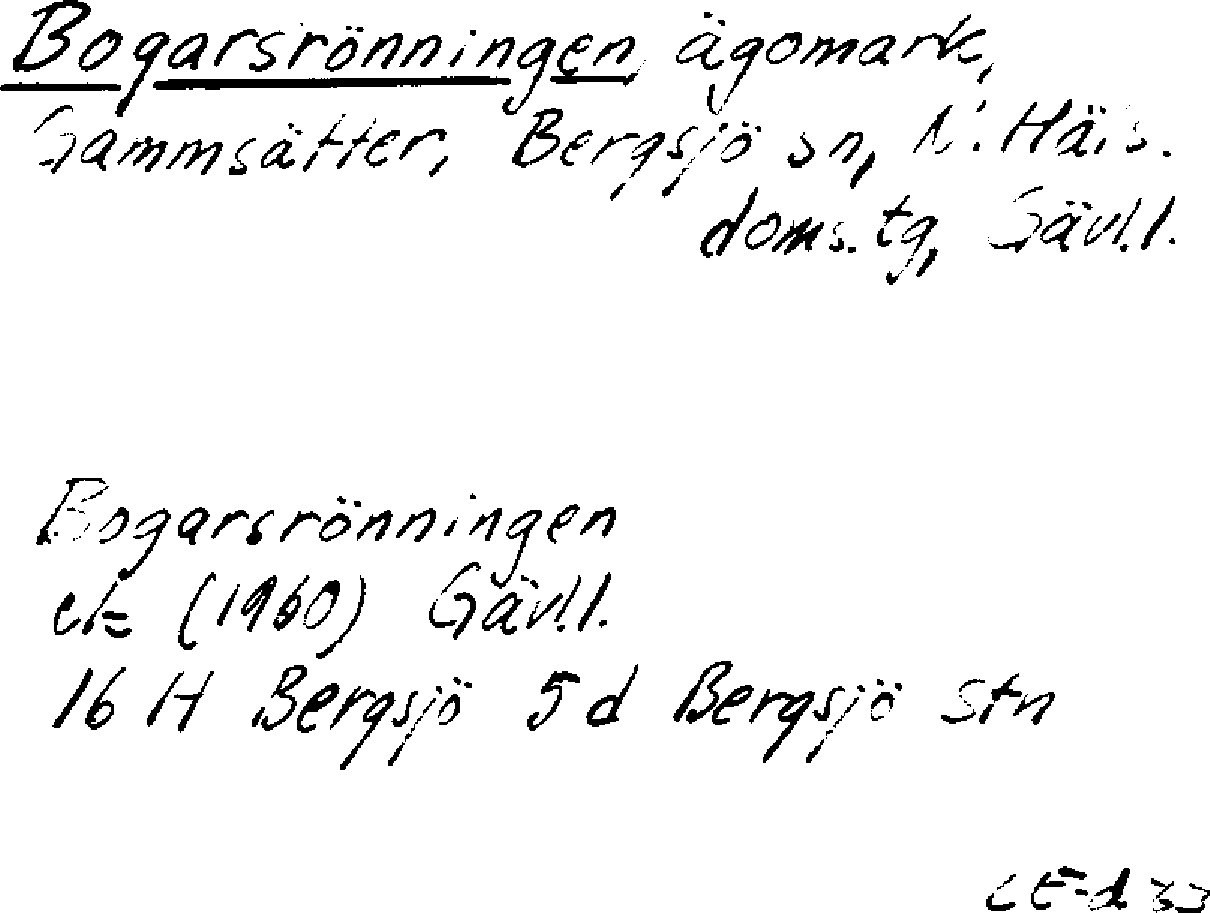 Bogarsrönningen, ägomark,
Gammsätter, Bergsjö sn, N. Häls.
doms.tg, Gävl.l.
Bogarsrönningen
ek (1960) Gävl.l.
16 H Bergsjö 5 d Bergsjö Stn